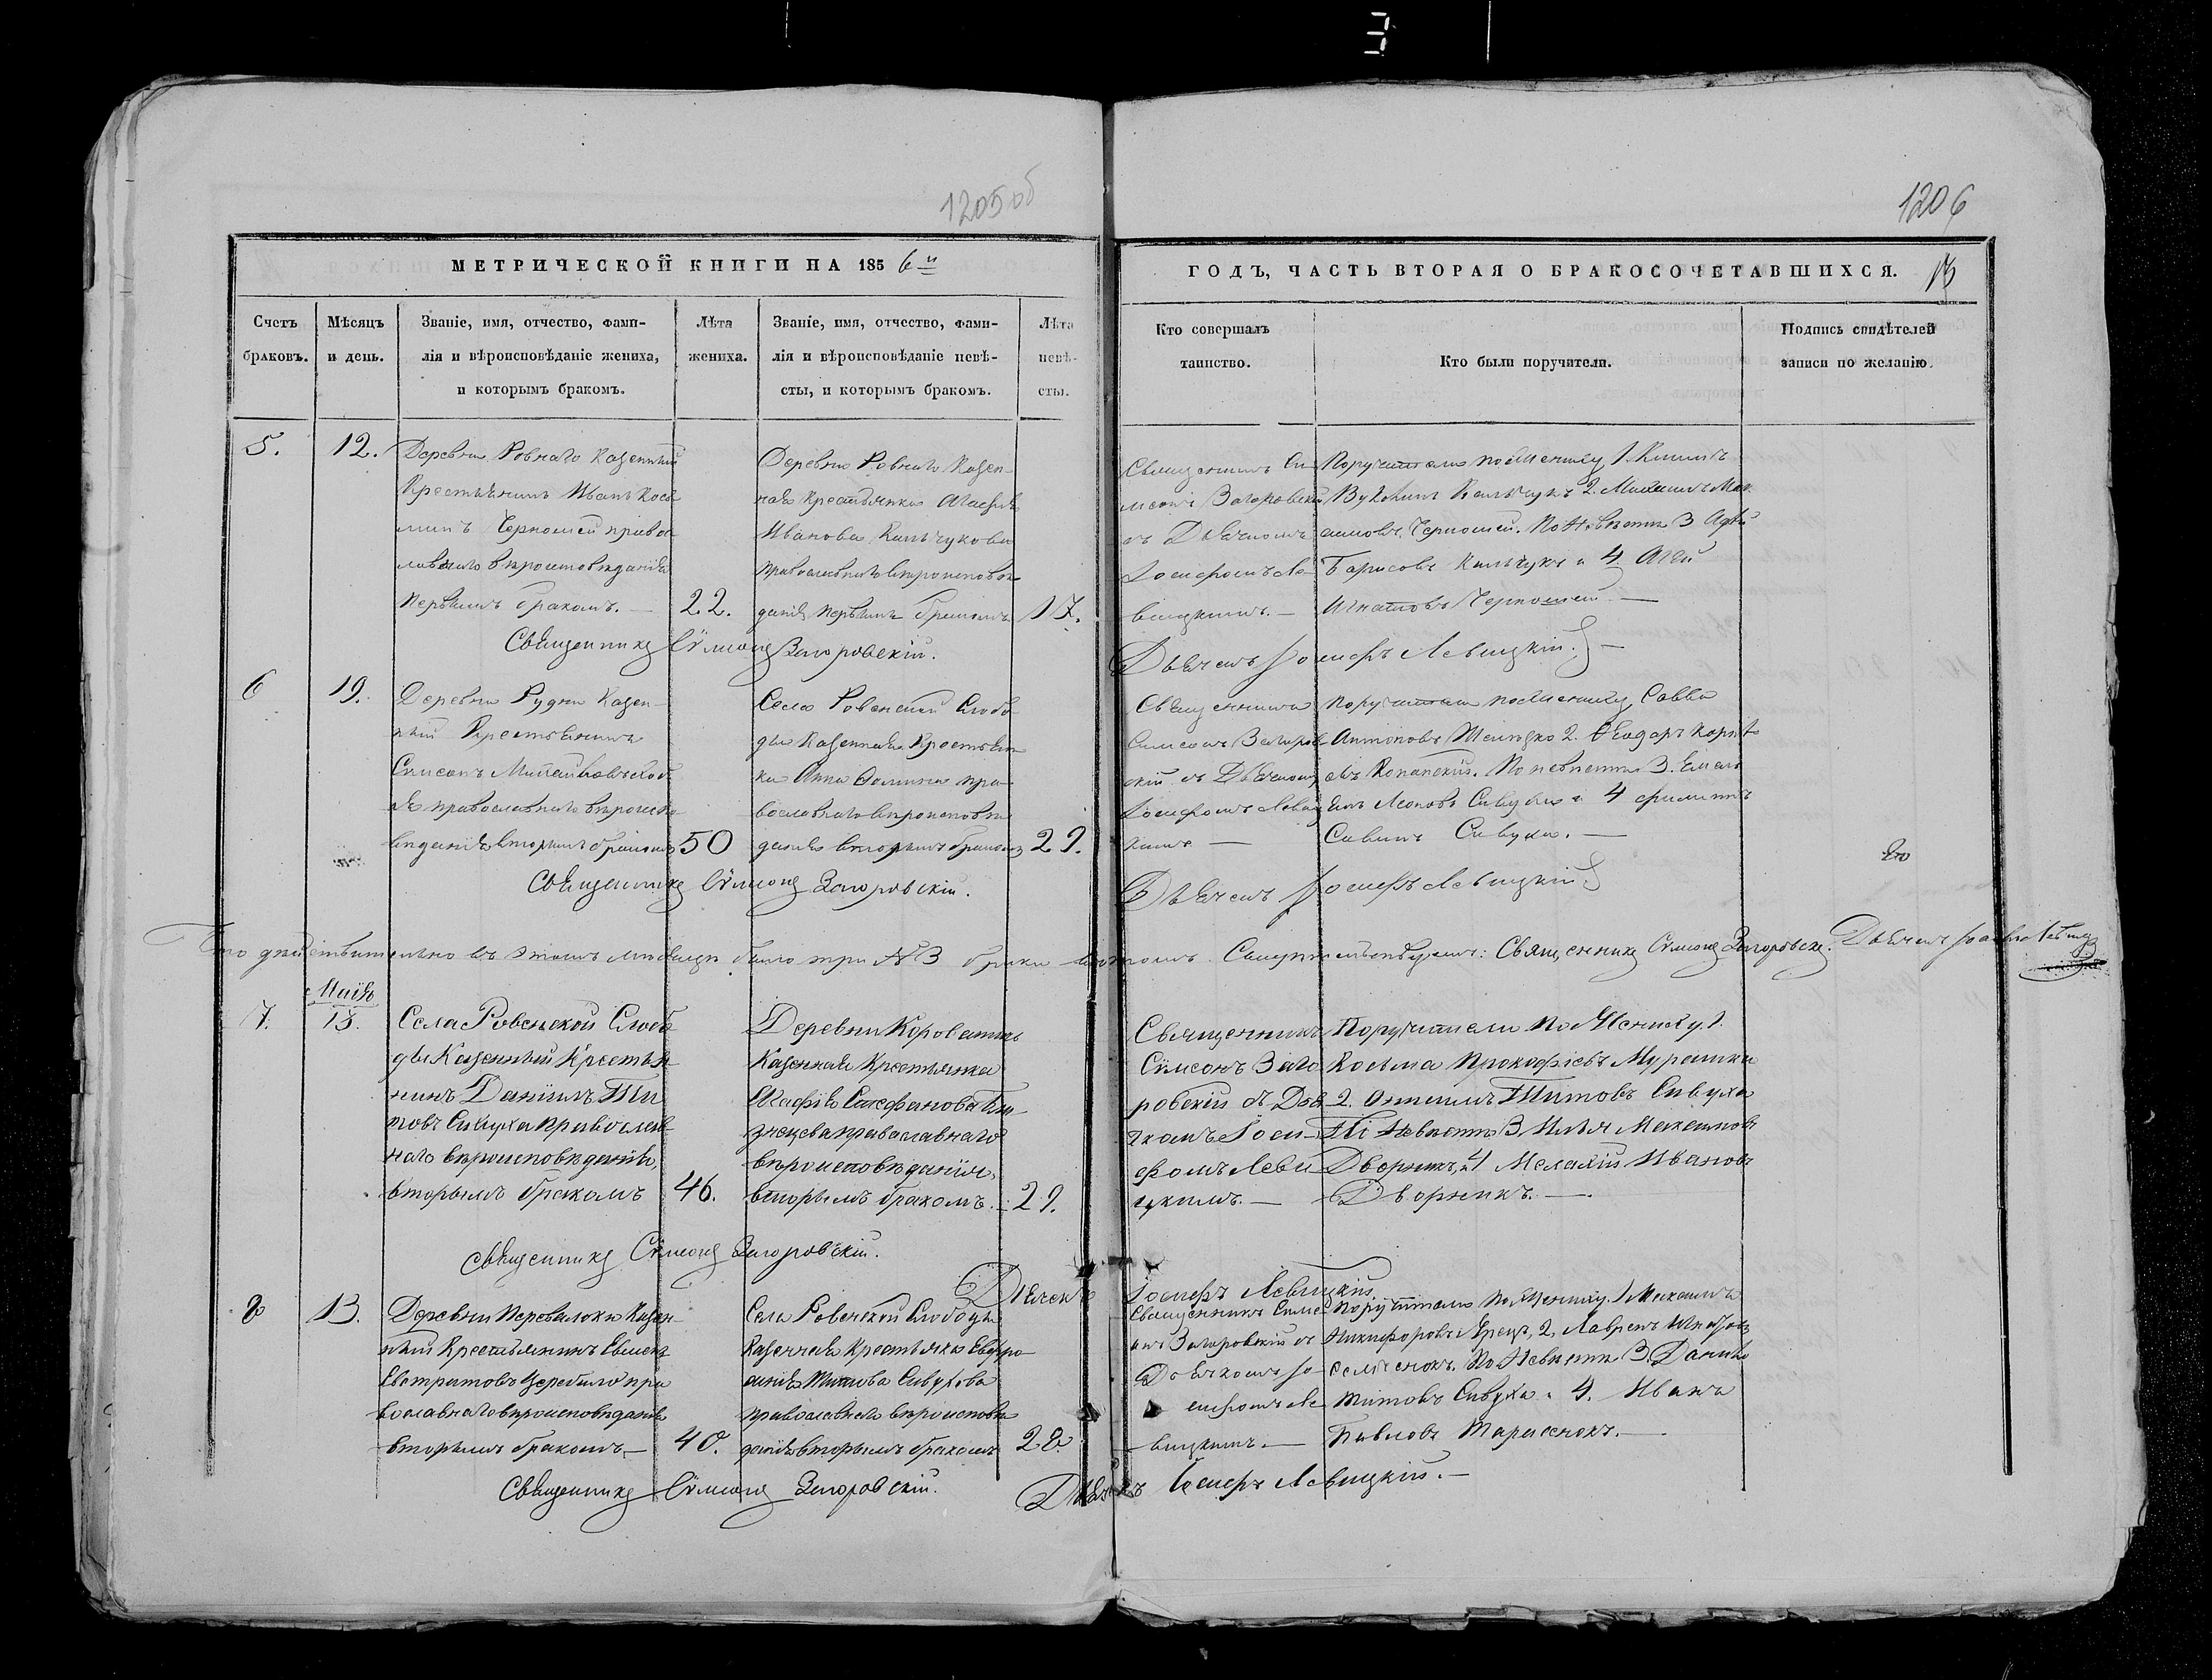 1205 об
1206
МЕТРИЧЕСКОЙ КНИГИ НА 1856 й
ГОДЪ, ЧАСТЬ ВТОРАЯ О БРАКОСОЧЕТАВШИХСЯ.
Счетъ браковъ.
Мѣсяцъ и день.
Званіе, имя, отчество, фами-
лія и вѣроисповѣданіе жениха,
и которымъ бракомъ.
Лѣта жениха.
Званіе, имя, отчество, фами-
лія и вѣроисповѣданіе невѣ-
сты, и которымъ бракомъ.
Лѣта невѣ-
сты.
Кто совершалъ
таинство.
Кто были поручители.
Подпись свидѣтелей
записи по желанію.
5.
12.
Деревни Ровнаго Казенный
Крестьянинъ Иванъ Косьмин
Черномей правос
лавнаго вѣроисповѣданія
первымъ бракомъ. —
22.
Деревни Ровнаго Казен-
ная крестьянка
Иванова Кильчукова
православнаго вѣроисповѣ
данія первымъ бракомъ
17.
Священникъ Си
меонъ Загоровскій
съ Дьячкомъ
Іосифомъ Ле
вицкимъ. —
Поручители по Жениху 1.
Кильчукъ 2. Михаилъ
Черномей. По Невѣсте 3
Борисовъ Кильчукъ и 4
Игнатовъ Черномей —
Священникъ Сѵмеонъ Загоровскій.
Дьячекъ Іосифъ Левицкій. —
6
19.
Деревни Рудни Казен-
ный Крестьянинъ
Симеонъ
православнаго вѣроиспо
вѣданія вторымъ бракомъ
50
Села Ровенской Слобо
ды Казенная Крестьян
ка Анна Фомина пра-
вославнаго вѣроисповѣ
данія вторымъ бракомъ
29.
Священникъ
Симеонъ Загоров-
скій съ Дьячкомъ
Іосифомъ Левиц
кимъ —
Поручители по Жениху Савва
Антоновъ 2. Ѳеодоръ
По невѣсте 3.
Леоновъ Сивуха и 4
Савинъ Сивуха. —
Священникъ Сѵмеонъ Загоровскій.
Дьячекъ Іосифъ Левицкій
Что дѣйствительно въ этомъ мѣсяце было три № 3 брака в томъ Свидетельствуемъ: Священникъ Сѵмеонъ Загоровскій. Дьячекъ Іосифъ Левиц
Маія
7.
13.
Села Ровенской Слобо
ды Казенный Крестья
нинъ Даніилъ Ти
товъ Сивуха православ
наго вѣроисповѣданія,
вторымъ бракомъ
46.
Деревни Короватичь
Казенная Крестьянка
Агафія Стефанова
православнаго
вѣроисповѣданія,
вторымъ бракомъ. —
29.
Священникъ
Сѵмеонъ Заго
ровскій съ Дья
чкомъ Іоси-
фомъ Леви
цкимъ. —
Поручители по Жениху. 1.
Косьма Прокофіевъ Мурашка
2. Титовъ Сивуха
По Невѣсте 3 Илья
Дворникъ, 4 Иановъ
Дворникъ. —
Священникъ Сѵмеонъ Загоровскій.
Дьячекъ Іосифъ Левицкій.
8
13.
Деревни Перевалоки Казен-
ный Крестьянинъ
Евстратовъ пра
вославнаго вѣроисповѣданія
вторымъ бракомъ —
40.
Села Ровенской Слободы
Казенная Крестьянка Евфро
синія Титова Сивухова
православнаго вѣроисповѣ
данія вторымъ бракомъ
28.
Священникъ Симе
онъ Загоровскій съ
Дьячкомъ Іо
сифомъ Ле
вицкимъ. —
Поручители по Жениху. 1 Михаилъ
Никифоровъ 2, Лавренъ
По Невѣсте 3. Данило
Титовъ Сивуха и 4. Иванъ
Павловъ Тарасенокъ. —
Священникъ Сѵмеонъ Загоровскій.
Дьячекъ Іосифъ Левицкій. —